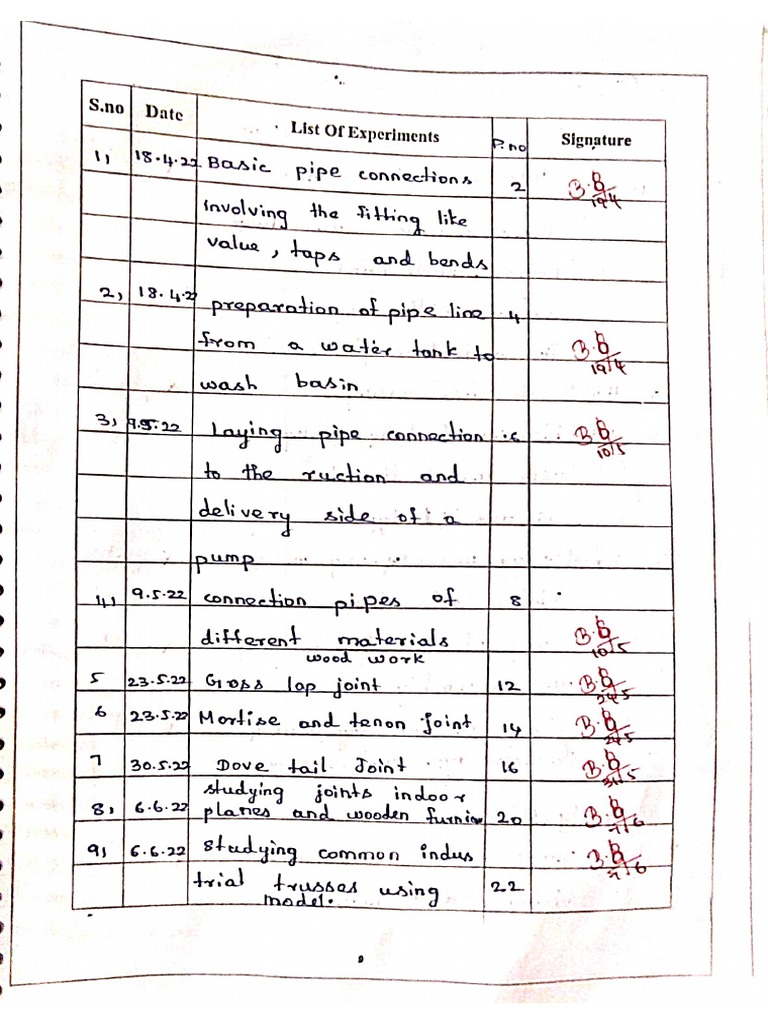 S.no Date List Of Experiments P.no Signature
1, 18.4.22 Basic pipe connections 2 B.B 19/4
involving the fitting like
value, taps and bends
2, 18.4.22 preparation of pipe line 4
from a water tank to B.B 19/4
wash basin
3, 9.5.22 Laying pipe connection 6 B.B 10/5
to the ruction and
delivery side of a
pump
4, 9.5.22 connection pipes of 8
different materials B.B 10/5
wood work
5 23.5.22 Gross lap joint 12 B.B 24/5
6 23.5.22 Mortise and tenon joint 14 B.B 24/5
7 30.5.22 Dove tail Joint 16 B.B 31/5
studying joints indoor
8, 6.6.22 planes and wooden furnion 20 B.B 7/6
9, 6.6.22 Studying common indus B.B 7/6
trial trusses using 22
model.